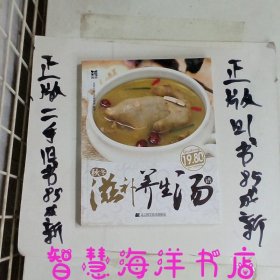 正版二手旧书85成新
19.80
秋冬
滋补养生汤
正版旧书85成新
智慧海洋书店